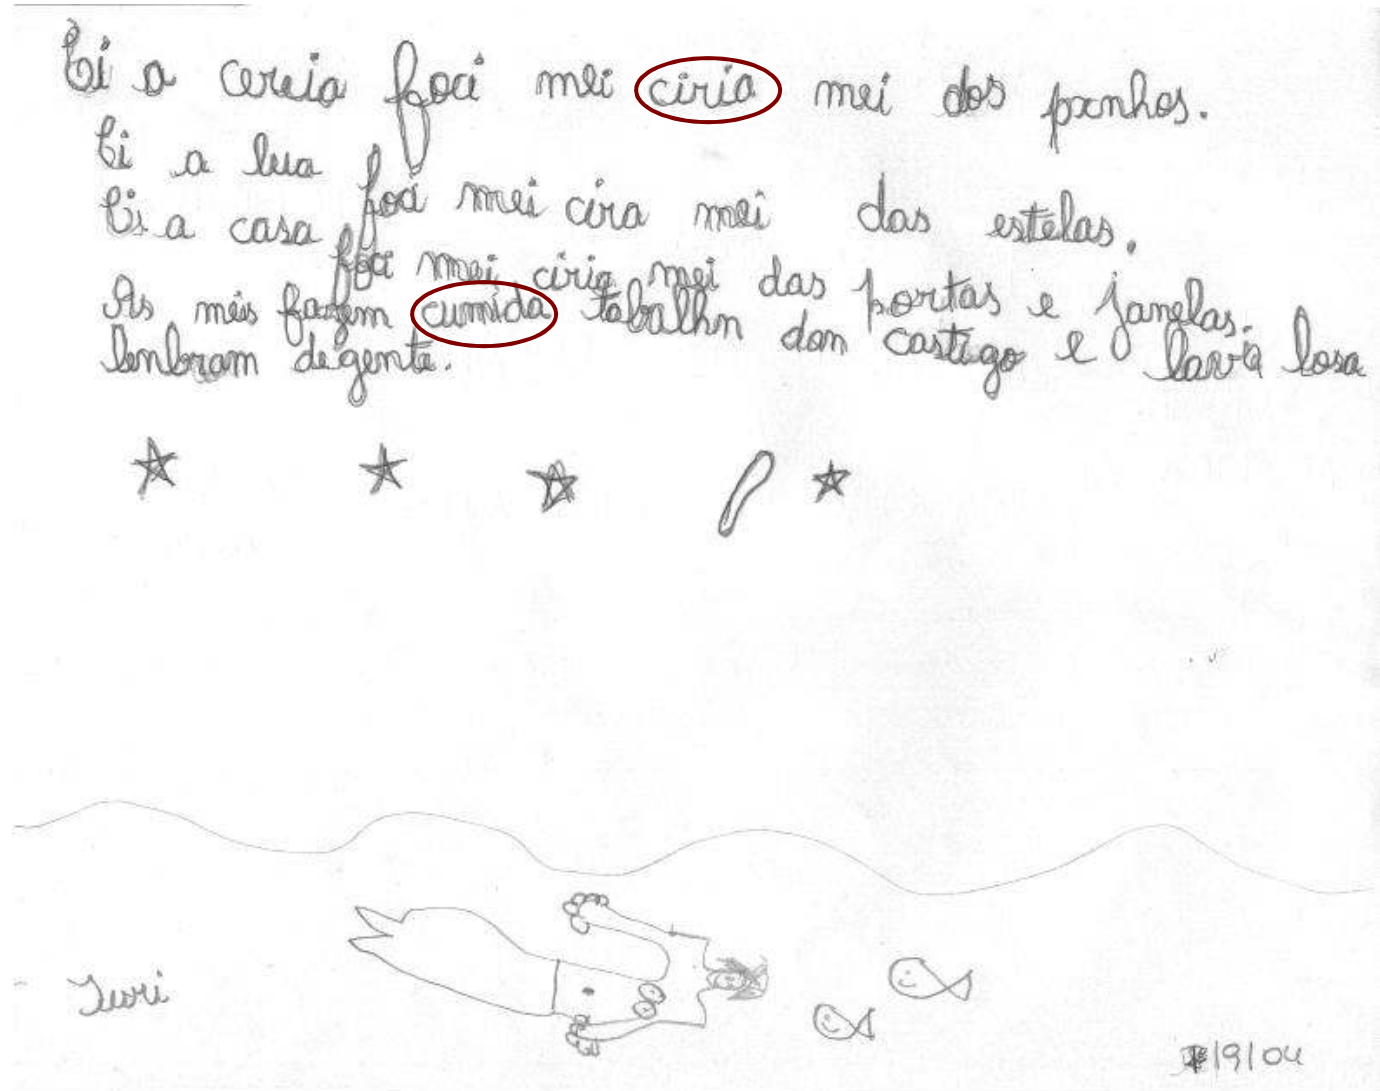 Ci a cereia foci mei ciria mei dos pxnhos.
Ci a lua
foci mei cira mei das estelas.
Ci a casa
foci mei ciria mei das portas e janelas.
As méis fazem cumida tabalhn dam castigo e lava losa
lenbram degente.
Iuri
19104